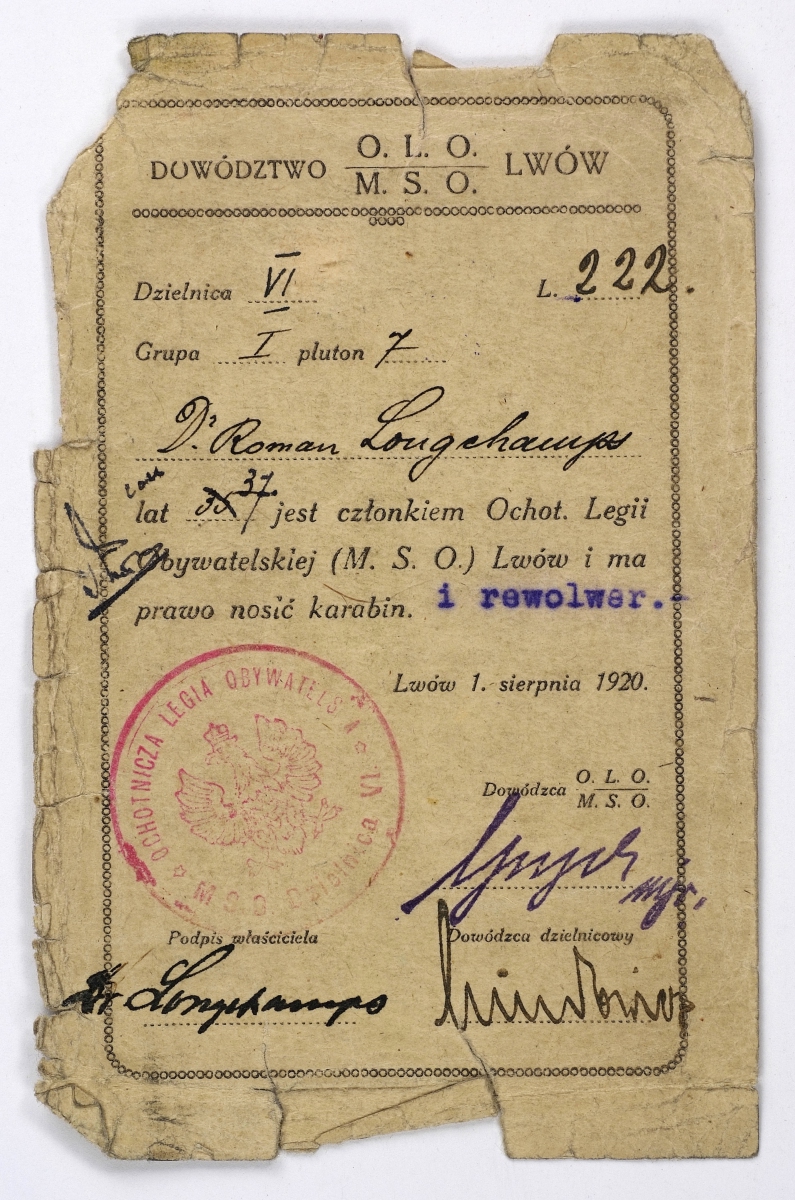 DOWÓDZTWO O. L. O. / M. S. O. LWÓW
Dzielnica VI L. 222.
Grupa I pluton 7
Dr. Roman Longchamps
lat 35 37 jest członkiem Ochot. Legii
Obywatelskiej (M. S. O.) Lwów i ma
prawo nosić karabin. i rewolwer.-
Lwów 1. sierpnia 1920.
OCHOTNICZA LEGIA OBYWATELSKA
M S O Dzielnica VI
Dowódca O. L. O. / M. S. O.
mjr.
Podpis właściciela Dowódca dzielnicowy
Dr Longchamps